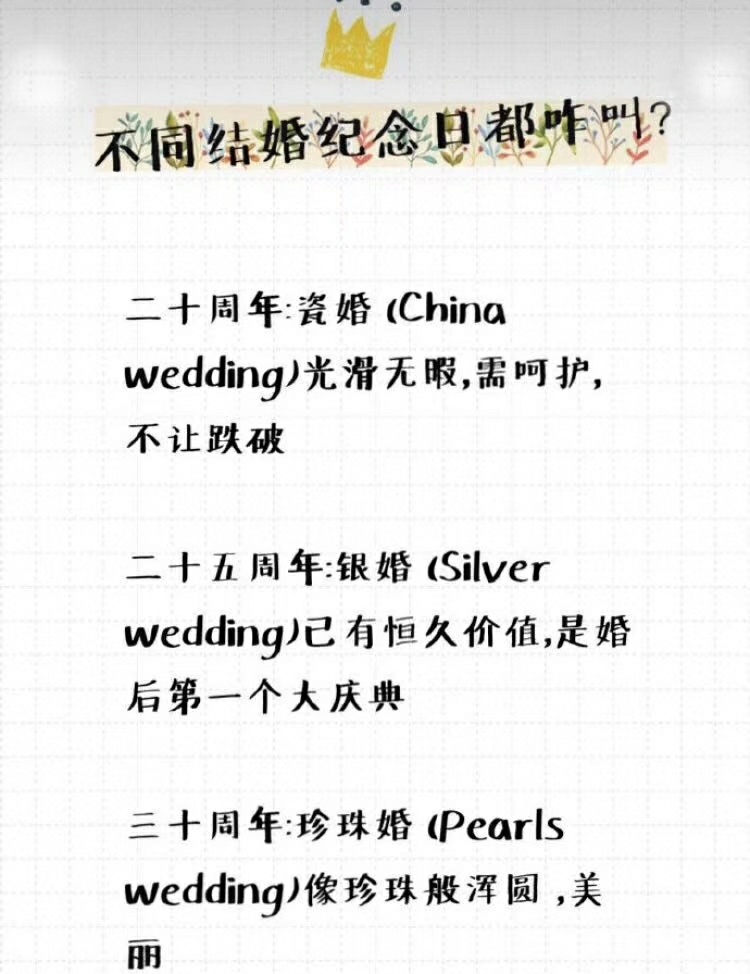 不同结婚纪念日都咋叫?
二十周年:瓷婚 (China
wedding)光滑无暇,需呵护,
不让跌破
二十五周年:银婚 (Silver
wedding)已有恒久价值,是婚
后第一个大庆典
三十周年:珍珠婚 (Pearls
wedding)像珍珠般浑圆,美
丽